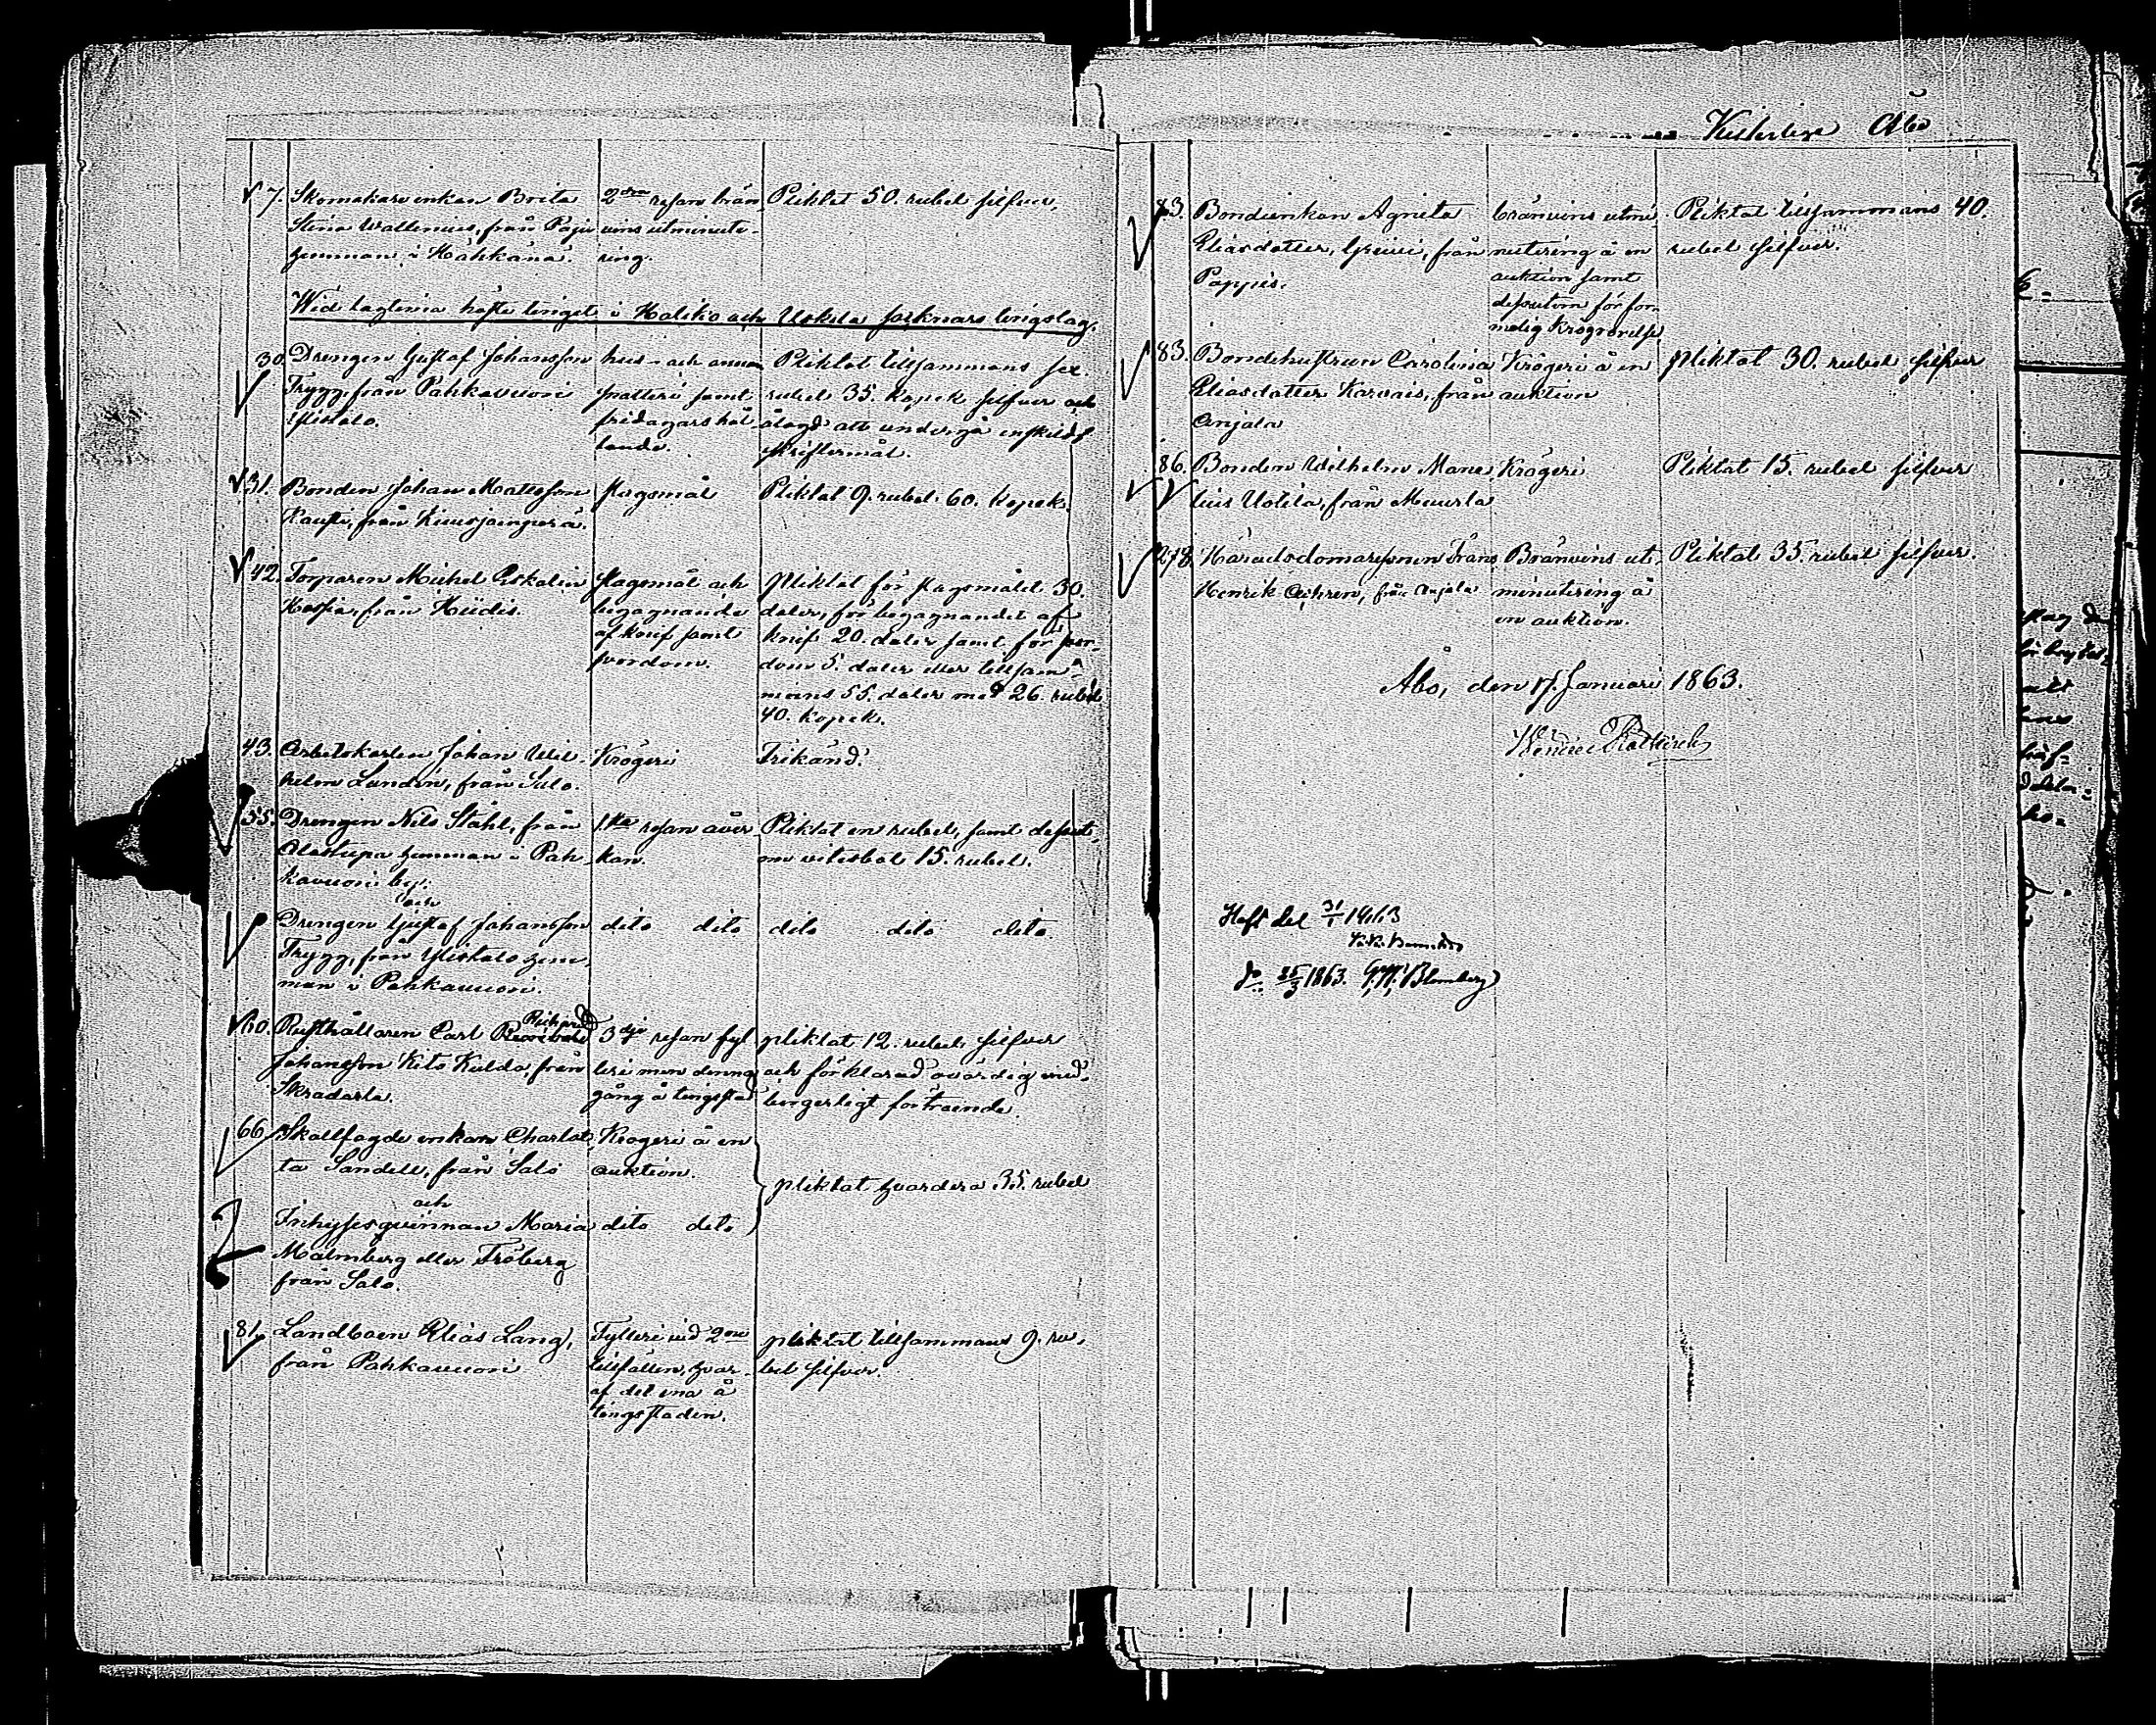 7. Skomakarenkan Brita
Stina Wallenius, från Paju
hemman i Hähkänä.
2dra resan brän-
vins utminute-
ring.
Pliktat 50. rubel silfver.
Wid lagtima höste tinget i Haliko och Uskela soknars tingslag.
30. Drengen Gustaf Johansson
Trygg, från Pahkavuori
Ylistalo.
hus- och annan
snatteri samt
fridagars hål
lande.
Pliktat tillsammans sex.
rubel 35. kopek silfver och
ålagd att undergå enskildt
skriftermål.
31. Bonden Johan Matsson
Kausti, från
slagsmål
Pliktat 9. rubel 60. kopek.
42. Torparen Michel Eskelin
från Hiidis.
slagsmål och
begagnande
af knif samt
svordom.
Pliktat för slagsmålet 30.
daler, för begagnandet af
knif 20. daler samt för svor-
dom 5. daler eller tillsam-
mans 55. daler med 26. rubel
40. kopek.
43. Arbetskarlen Johan Wil-
helm Lundén, från Salo.
Krögeri
Frikänd.
55. Drengen Nils Ståhl, från
Alastupa hemman i Pah-
kavuori by.
och
1sta resan åver-
kan.
Pliktat en rubel, samt dessut-
om vitesbot 15. rubel.
Drengen Gustaf Johansson
Trygg, från Ylistalo hem-
man i Pahkavuori.
dito dito
dito dito dito
60. Rusthållaren Carl Richard
Johansson Kito Kulda, från
Skradarla.
3dje resan fyl
leri men denna
gång å tingsstad
pliktat 12. rubel silfver
och förklarad ovärdig med-
borgerligt förtroende.
66. Skallfogde enkan Charlot-
ta Sandell, från Salo
och
Krögeri å en
auktion.
pliktat hvardera 35. rubel
Inhyses qvinnan Maria
Malmberg eller Fröberg
från Salo.
dito dito
81. Landboen Elias Lang,
från Pahkavuori
Fylleri vid 2ne
tillfällen, hvar-
af det ena å
tingsstaden.
pliktat tillsammans 9. ru-
bel silfver.
Åbo
83. Bondenkan Agneta
Eliasdotter, från
Pappis.
bränvins utmi-
nutering å en
auktion samt
dessutom för för-
medig krögrörelse
Pliktat tillsammans 40.
rubel silfver.
83. Bondehustrun Carolina
Eliasdotter Karvais, från
Anjala
Krögeri å en
auktion
pliktat 30. rubel silfver
86. Bonden Wilhelm Mane-
lius Uotila, från Muurla
Krögeri
Pliktat 15. rubel silfver
278. Häradsdomaresonen Frans
Henrik från Anjala
Bränvins ut-
minutering å
en auktion.
Pliktat 35. rubel silfver.
Åbo, den 17. Januari 1863.
Haft del 31/1 1863
do 25/3 1863. Blomberg